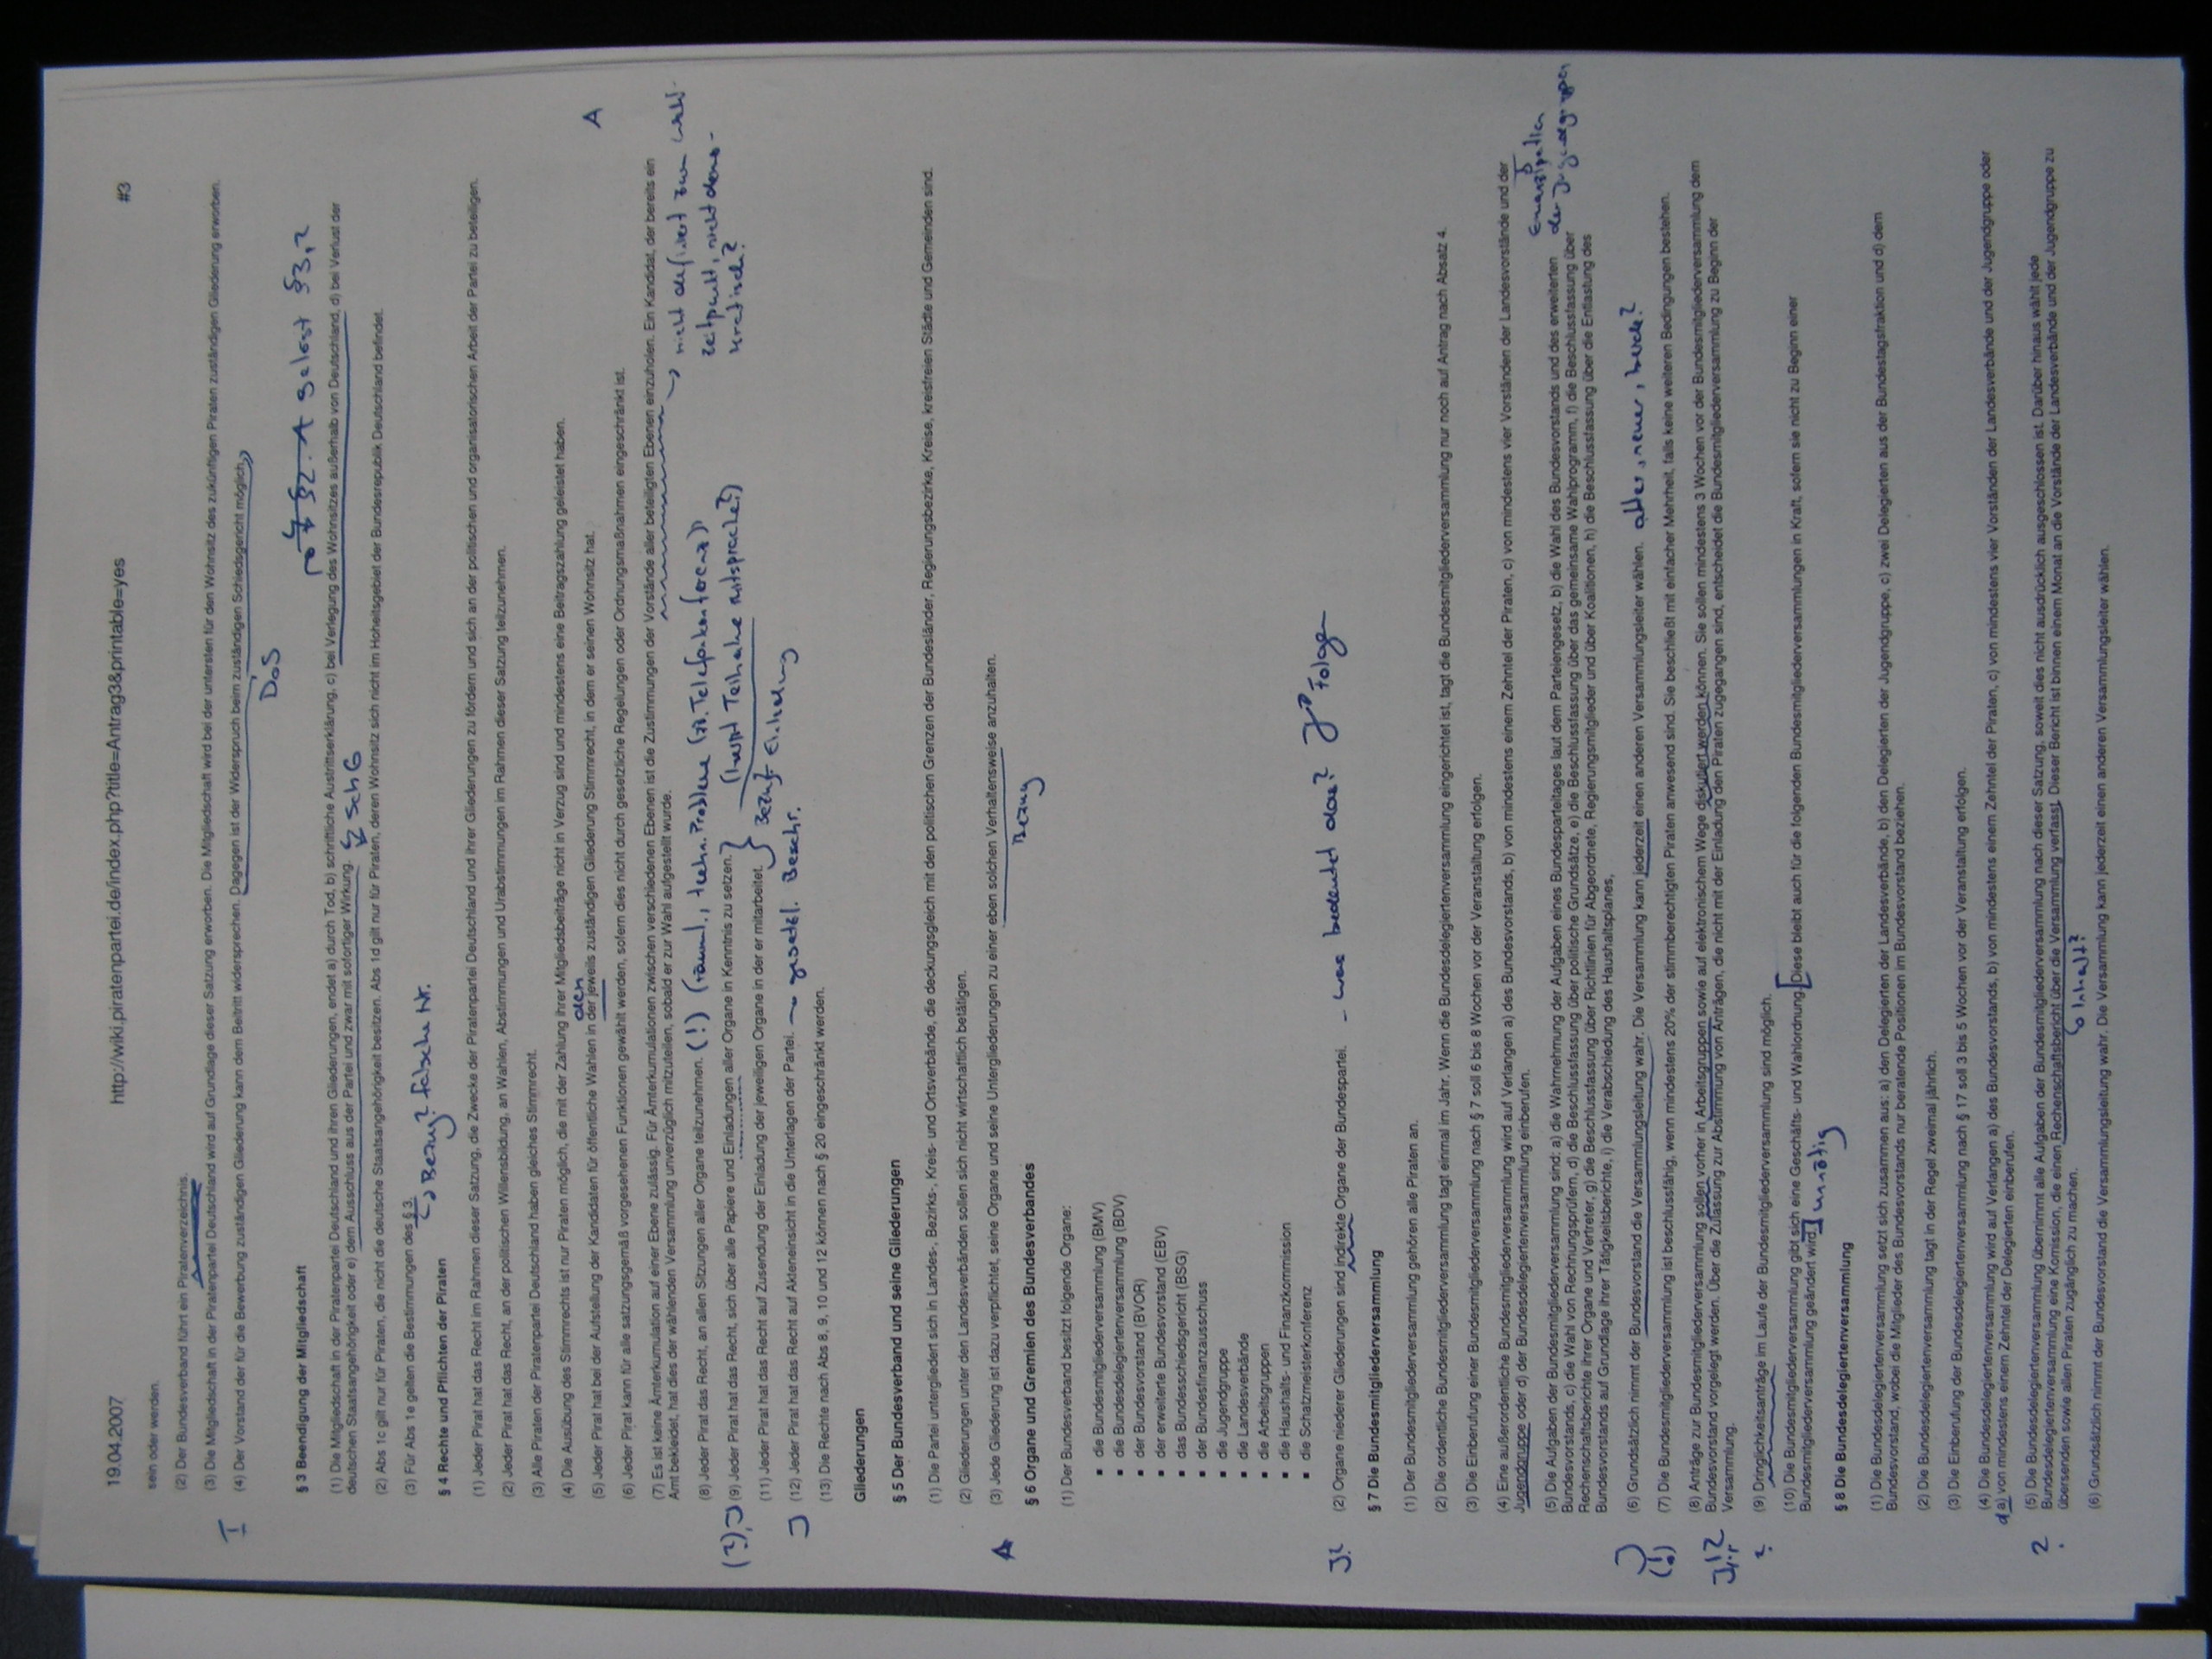 19.04.2007 http://wiki.piratenpartei.de/index.php?title=Antrag3&printable=yes #3
sein oder werden.
(2) Der Bundesverband führt ein Piratenverzeichnis.
I
(3) Die Mitgliedschaft in der Piratenpartei Deutschland wird auf Grundlage dieser Satzung erworben. Die Mitgliedschaft wird bei der untersten für den Wohnsitz des zukünftigen Piraten zuständigen Gliederung erworben.
(4) Der Vorstand der für die Bewerbung zuständigen Gliederung kann dem Beitritt widersprechen. Dagegen ist der Widerspruch beim zuständigen Schiedsgericht möglich.
DoS
§ 3 Beendigung der Mitgliedschaft
§2.1 §3,2
(1) Die Mitgliedschaft in der Piratenpartei Deutschland und ihren Gliederungen, endet a) durch Tod, b) schriftliche Austrittserklärung, c) bei Verlegung des Wohnsitzes außerhalb von Deutschland, d) bei Verlust der
deutschen Staatsangehörigkeit oder e) dem Ausschluss aus der Partei und zwar mit sofortiger Wirkung. SchG
(2) Abs 1c gilt nur für Piraten, die nicht die deutsche Staatsangehörigkeit besitzen. Abs 1d gilt nur für Piraten, deren Wohnsitz sich nicht im Hoheitsgebiet der Bundesrepublik Deutschland befindet.
(3) Für Abs 1e gelten die Bestimmungen des § 3.
Bezug? falsche Nr.
§ 4 Rechte und Pflichten der Piraten
(1) Jeder Pirat hat das Recht im Rahmen dieser Satzung, die Zwecke der Piratenpartei Deutschland und ihrer Gliederungen zu fördern und sich an der politischen und organisatorischen Arbeit der Partei zu beteiligen.
(2) Jeder Pirat hat das Recht, an der politischen Willensbildung, an Wahlen, Abstimmungen und Urabstimmungen im Rahmen dieser Satzung teilzunehmen.
(3) Alle Piraten der Piratenpartei Deutschland haben gleiches Stimmrecht.
(4) Die Ausübung des Stimmrechts ist nur Piraten möglich, die mit der Zahlung ihrer Mitgliedsbeiträge nicht in Verzug sind und mindestens eine Beitragszahlung geleistet haben.
den
(5) Jeder Pirat hat bei der Aufstellung der Kandidaten für öffentliche Wahlen in der jeweils zuständigen Gliederung Stimmrecht, in dem er seinen Wohnsitz hat. A
(6) Jeder Pirat kann für alle satzungsgemäß vorgesehenen Funktionen gewählt werden, sofern dies nicht durch gesetzliche Regelungen oder Ordnungsmaßnahmen eingeschränkt ist.
(7) Es ist keine Ämterkumulation auf einer Ebene zulässig. Für Ämterkumulationen zwischen verschiedenen Ebenen ist die Zustimmungen der Vorstände aller beteiligten Ebenen einzuholen. Ein Kandidat, der bereits ein
Amt bekleidet, hat dies der wählenden Versammlung unverzüglich mitzuteilen, sobald er zur Wahl aufgestellt wurde.
nicht definiert zum Wahl-
zeitpunkt, nicht demo-
kratisch?
(8) Jeder Pirat das Recht, an allen Sitzungen aller Organe teilzunehmen. (!) (räuml., techn. Probleme (zB. Telefonkonferenz))
(?) J (9) Jeder Pirat hat das Recht, sich über alle Papiere und Einladungen aller Organe in Kenntnis zu setzen. (Impl. Teilnahme mitsprache?)
(11) Jeder Pirat hat das Recht auf Zusendung der Einladung der jeweiligen Organe in der er mitarbeitet. Bezug Einladung
J (12) Jeder Pirat hat das Recht auf Akteneinsicht in die Unterlagen der Partei. gesetzl. Beschr.
(13) Die Rechte nach Abs 8, 9, 10 und 12 können nach § 20 eingeschränkt werden.
Gliederungen
§ 5 Der Bundesverband und seine Gliederungen
(1) Die Partei untergliedert sich in Landes-, Bezirks-, Kreis- und Ortsverbände, die deckungsgleich mit den politischen Grenzen der Bundesländer, Regierungsbezirke, Kreise, kreisfreien Städte und Gemeinden sind.
(2) Gliederungen unter den Landesverbänden sollen sich nicht wirtschaftlich betätigen.
A (3) Jede Gliederung ist dazu verpflichtet, seine Organe und seine Untergliederungen zu einer eben solchen Verhaltensweise anzuhalten.
Bezug
§ 6 Organe und Gremien des Bundesverbandes
(1) Der Bundesverband besitzt folgende Organe:
▪ die Bundesmitgliederversammlung (BMV)
▪ die Bundesdelegiertenversammlung (BDV)
▪ der Bundesvorstand (BVOR)
▪ der erweiterte Bundesvorstand (EBV)
▪ das Bundesschiedsgericht (BSG)
▪ der Bundesfinanzausschuss
▪ die Jugendgruppe
▪ die Landesverbände
▪ die Arbeitsgruppen
▪ die Haushalts- und Finanzkommission
▪ die Schatzmeisterkonferenz
J? (2) Organe niederer Gliederungen sind indirekte Organe der Bundespartei. - was bedeutet das? Folge
§ 7 Die Bundesmitgliederversammlung
(1) Der Bundesmitgliederversammlung gehören alle Piraten an.
(2) Die ordentliche Bundesmitgliederversammlung tagt einmal im Jahr. Wenn die Bundesdelegiertenversammlung eingerichtet ist, tagt die Bundesmitgliederversammlung nur noch auf Antrag nach Absatz 4.
(3) Die Einberufung einer Bundesmitgliederversammlung nach § 7 soll 6 bis 8 Wochen vor der Veranstaltung erfolgen.
(4) Eine außerordentliche Bundesmitgliederversammlung wird auf Verlangen a) des Bundesvorstands, b) von mindestens einem Zehntel der Piraten, c) von mindestens vier Vorständen der Landesvorstände und der
Jugendgruppe oder d) der Bundesdelegiertenversammlung einberufen.
der Jugendgruppen
(5) Die Aufgaben der Bundesmitgliederversammlung sind: a) die Wahrnehmung der Aufgaben eines Bundesparteitages laut dem Parteiengesetz, b) die Wahl des Bundesvorstands und des erweiterten
Bundesvorstands, c) die Wahl von Rechnungsprüfern, d) die Beschlussfassung über politische Grundsätze, e) die Beschlussfassung über das gemeinsame Wahlprogramm, f) die Beschlussfassung über
Rechenschaftsberichte ihrer Organe und Vertreter, g) die Beschlussfassung über Richtlinien für Abgeordnete, Regierungsmitglieder und über Koalitionen, h) die Beschlussfassung über die Entlastung des
Bundesvorstands auf Grundlage ihrer Tätigkeitsberichte, i) die Verabschiedung des Haushaltsplanes,
J (!) (6) Grundsätzlich nimmt der Bundesvorstand die Versammlungsleitung wahr. Die Versammlung kann jederzeit einen anderen Versammlungsleiter wählen. alter, neuer, beide?
(7) Die Bundesmitgliederversammlung ist beschlussfähig, wenn mindestens 20% der stimmberechtigten Piraten anwesend sind. Sie beschließt mit einfacher Mehrheit, falls keine weiteren Bedingungen bestehen.
(8) Anträge zur Bundesmitgliederversammlung sollen vorher in Arbeitsgruppen sowie auf elektronischem Wege diskutiert werden können. Sie sollen mindestens 3 Wochen vor der Bundesmitgliederversammlung dem
Bundesvorstand vorgelegt werden. Über die Zulassung zur Abstimmung von Anträgen, die nicht mit der Einladung den Piraten zugegangen sind, entscheidet die Bundesmitgliederversammlung zu Beginn der
Versammlung.
? (9) Dringlichkeitsanträge im Laufe der Bundesmitgliederversammlung sind möglich.
(10) Die Bundesmitgliederversammlung gibt sich eine Geschäfts- und Wahlordnung. [Diese bleibt auch für die folgenden Bundesmitgliederversammlungen in Kraft, sofern sie nicht zu Beginn einer
Bundesmitgliederversammlung geändert wird.] unnötig
§ 8 Die Bundesdelegiertenversammlung
(1) Die Bundesdelegiertenversammlung setzt sich zusammen aus: a) den Delegierten der Landesverbände, b) den Delegierten der Jugendgruppe, c) zwei Delegierten aus der Bundestagsfraktion und d) dem
Bundesvorstand, wobei die Mitglieder des Bundesvorstands nur beratende Positionen im Bundesvorstand beziehen.
(2) Die Bundesdelegiertenversammlung tagt in der Regel zweimal jährlich.
(3) Die Einberufung der Bundesdelegiertenversammlung nach § 17 soll 3 bis 5 Wochen vor der Veranstaltung erfolgen.
(4) Die Bundesdelegiertenversammlung wird auf Verlangen a) des Bundesvorstands, b) von mindestens einem Zehntel der Piraten, c) von mindestens vier Vorständen der Landesverbände und der Jugendgruppe oder
d a) von mindestens einem Zehntel der Delegierten einberufen.
? (5) Die Bundesdelegiertenversammlung übernimmt alle Aufgaben der Bundesmitgliederversammlung nach dieser Satzung, soweit dies nicht ausdrücklich ausgeschlossen ist. Darüber hinaus wählt jede
Bundesdelegiertenversammlung eine Komission, die einen Rechenschaftsbericht über die Versammlung verfasst. Dieser Bericht ist binnen einem Monat an die Vorstände der Landesverbände und der Jugendgruppe zu
übersenden sowie allen Piraten zugänglich zu machen.
Inhalt?
(6) Grundsätzlich nimmt der Bundesvorstand die Versammlungsleitung wahr. Die Versammlung kann jederzeit einen anderen Versammlungsleiter wählen.